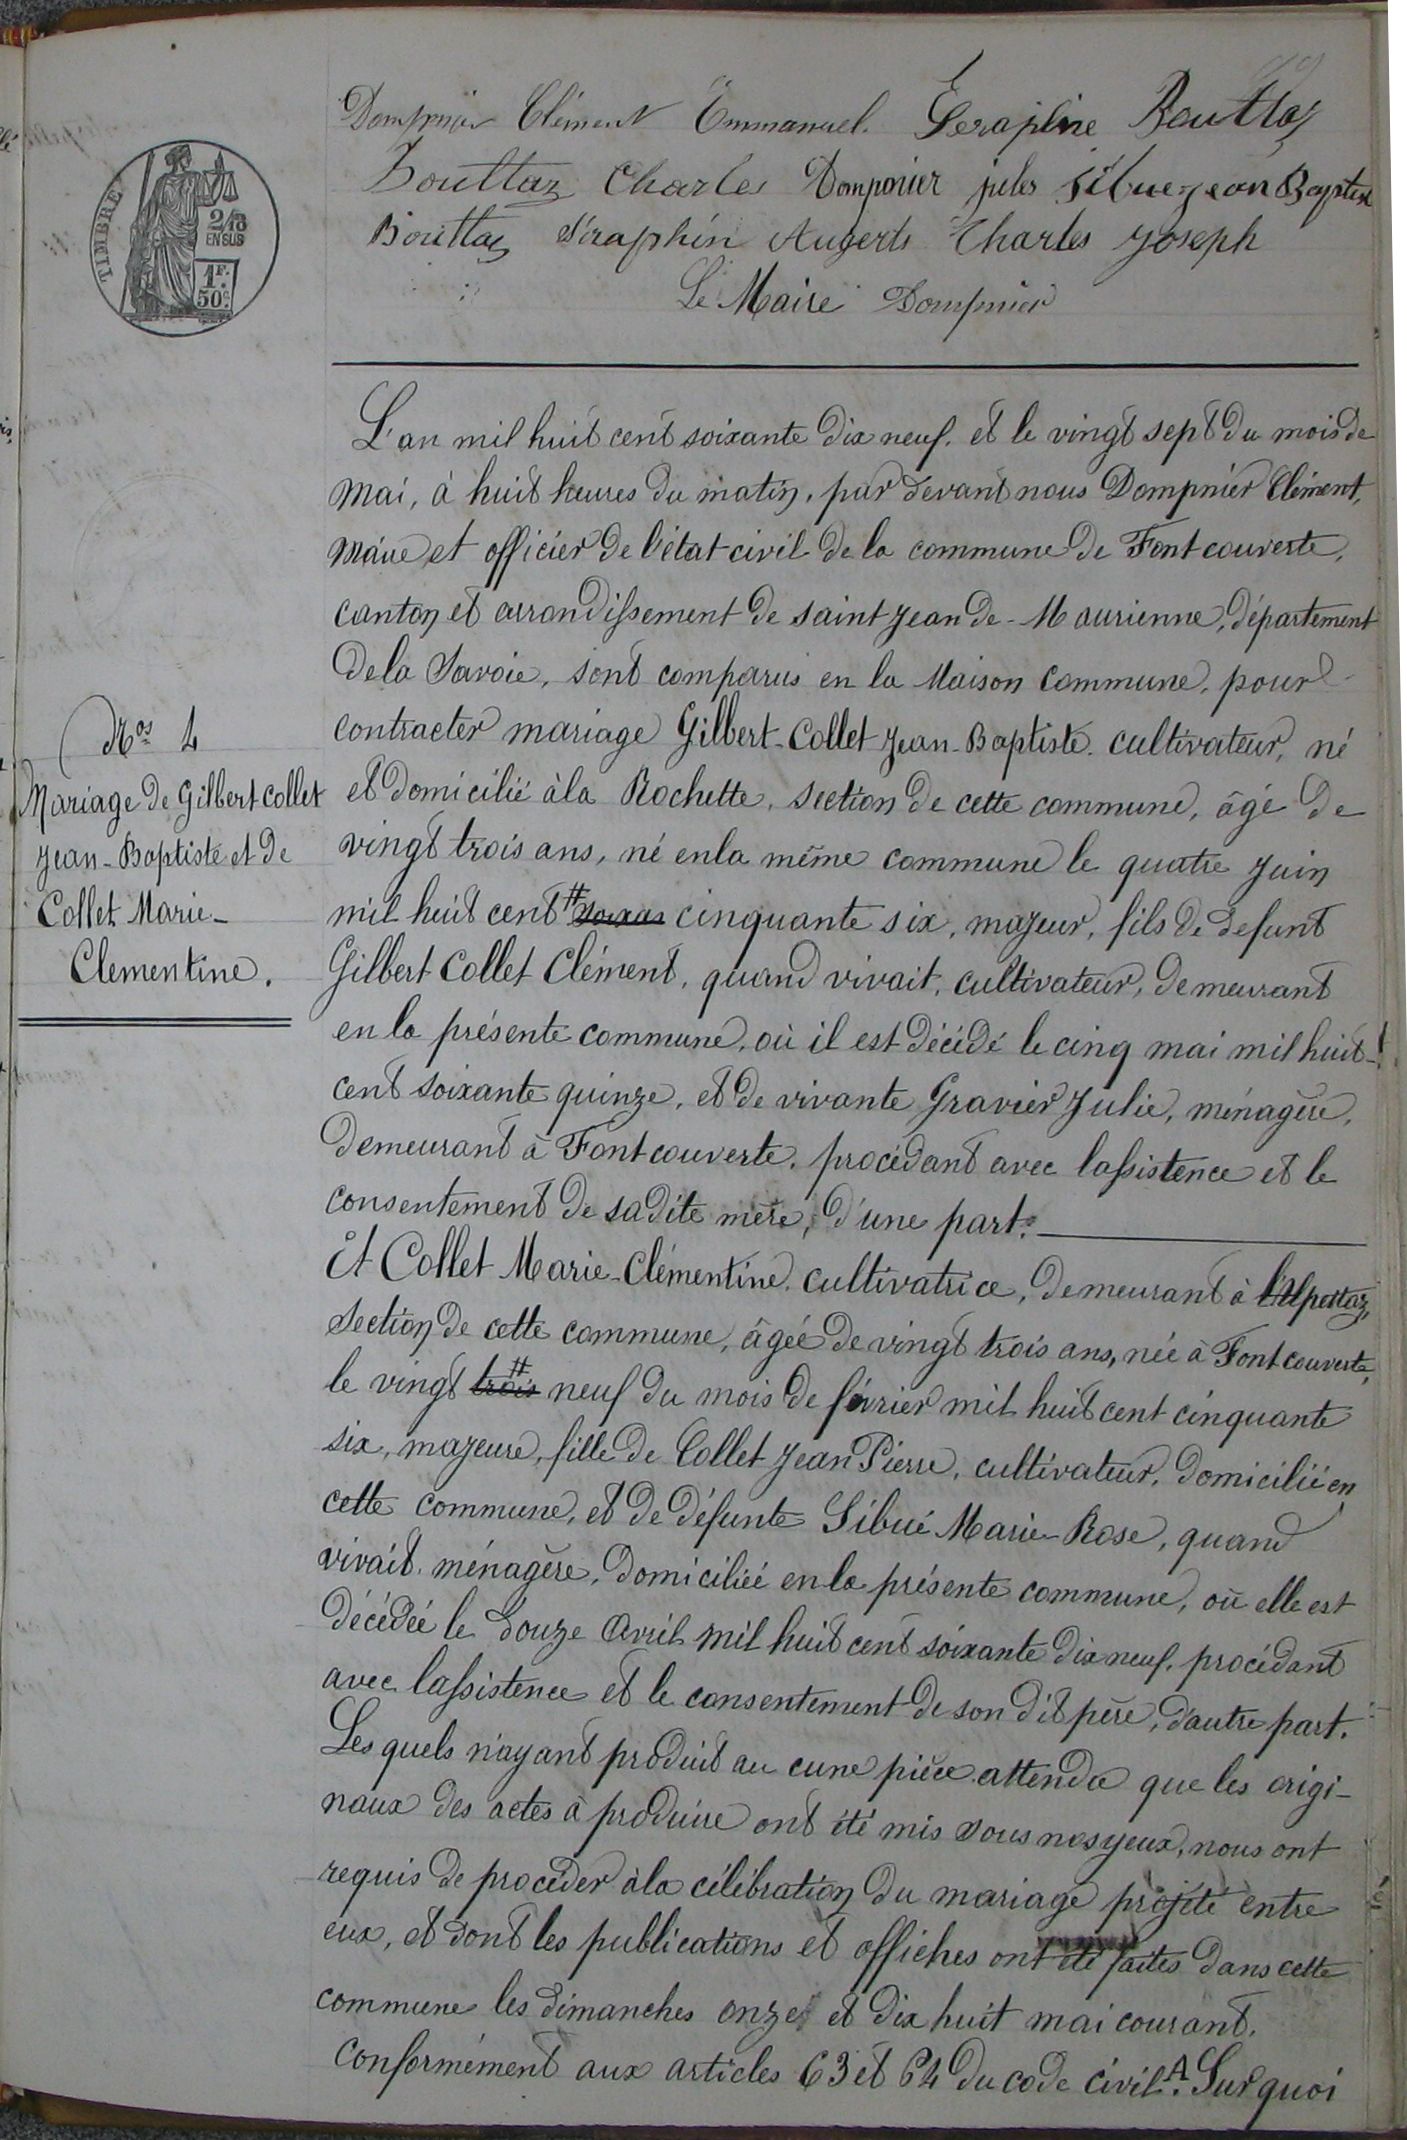 Dompnier Clément Emmanuel Séraphine Bouttaz
Bouttaz Charles Dompnier jules Sibue jean Baptiste
Bouttaz Séraphin Augerts Charles Joseph
Le Maire Dompnier
TIMBRE
2/10
EN SUS
1F.
50c.
L'an mil huit cent soixante dix neuf, et le vingt sept du mois de
mai, à huit heures du matin, par devant nous Dompnier Clément,
Maire et officier de l'état civil de la commune de Fontcouverte,
canton et arrondissement de saint Jean de-Maurienne, département
de la Savoie, sont comparus en la Maison commune, pour
contracter mariage Gilbert-Collet Jean-Baptiste cultivateur, né
et domicilié à la Rochette, section de cette commune, âgé de
vingt trois ans, né en la même commune le quatre Juin
mil huit cent # soixan cinquante six, majeur, fils de defunt
Gilbert Collet Clément, quand vivait, cultivateur, demeurant
en la présente commune, où il est décédé le cinq mai mil huit-
cent soixante quinze, et de vivante Gravier Julie, ménagère,
demeurant à Fontcouverte, procédant avec lassistence et le
consentement de sa dite mère, d'une part.
Nos 4
Mariage de Gilbert Collet
Jean-Baptiste et de
Collet Marie-
Clementine.
Et Collet Marie-Clémentine, cultivatrice, demeurant à l'Alpettaz,
section de cette commune, âgée de vingt trois ans, née à Fontcouverte,
le vingt trois # neuf du mois de février mil huit cent cinquante
six, majeure, fille de Collet Jean Pierre, cultivateur, domicilié en
cette commune, et de défunte Sibué Marie-Rose, quand
vivait, ménagère, domiciliée en la présente commune, où elle est
décédée le douze Avril mil huit cent soixante dix neuf, procédant
avec lassistence et le consentement de son dit père, d'autre part.
Les quels n'ayant produit au cune pièce attendu que les origi-
naux des actes à produire ont été mis sous nos yeux, nous ont
requis de procéder à la célébration du mariage projeté entre
eux, et dont les publications et affiches ont été faites dans cette
commune les dimanches onze et dix huit mai courant,
conformément aux articles 63 et 64 du code civil. A Sur quoi